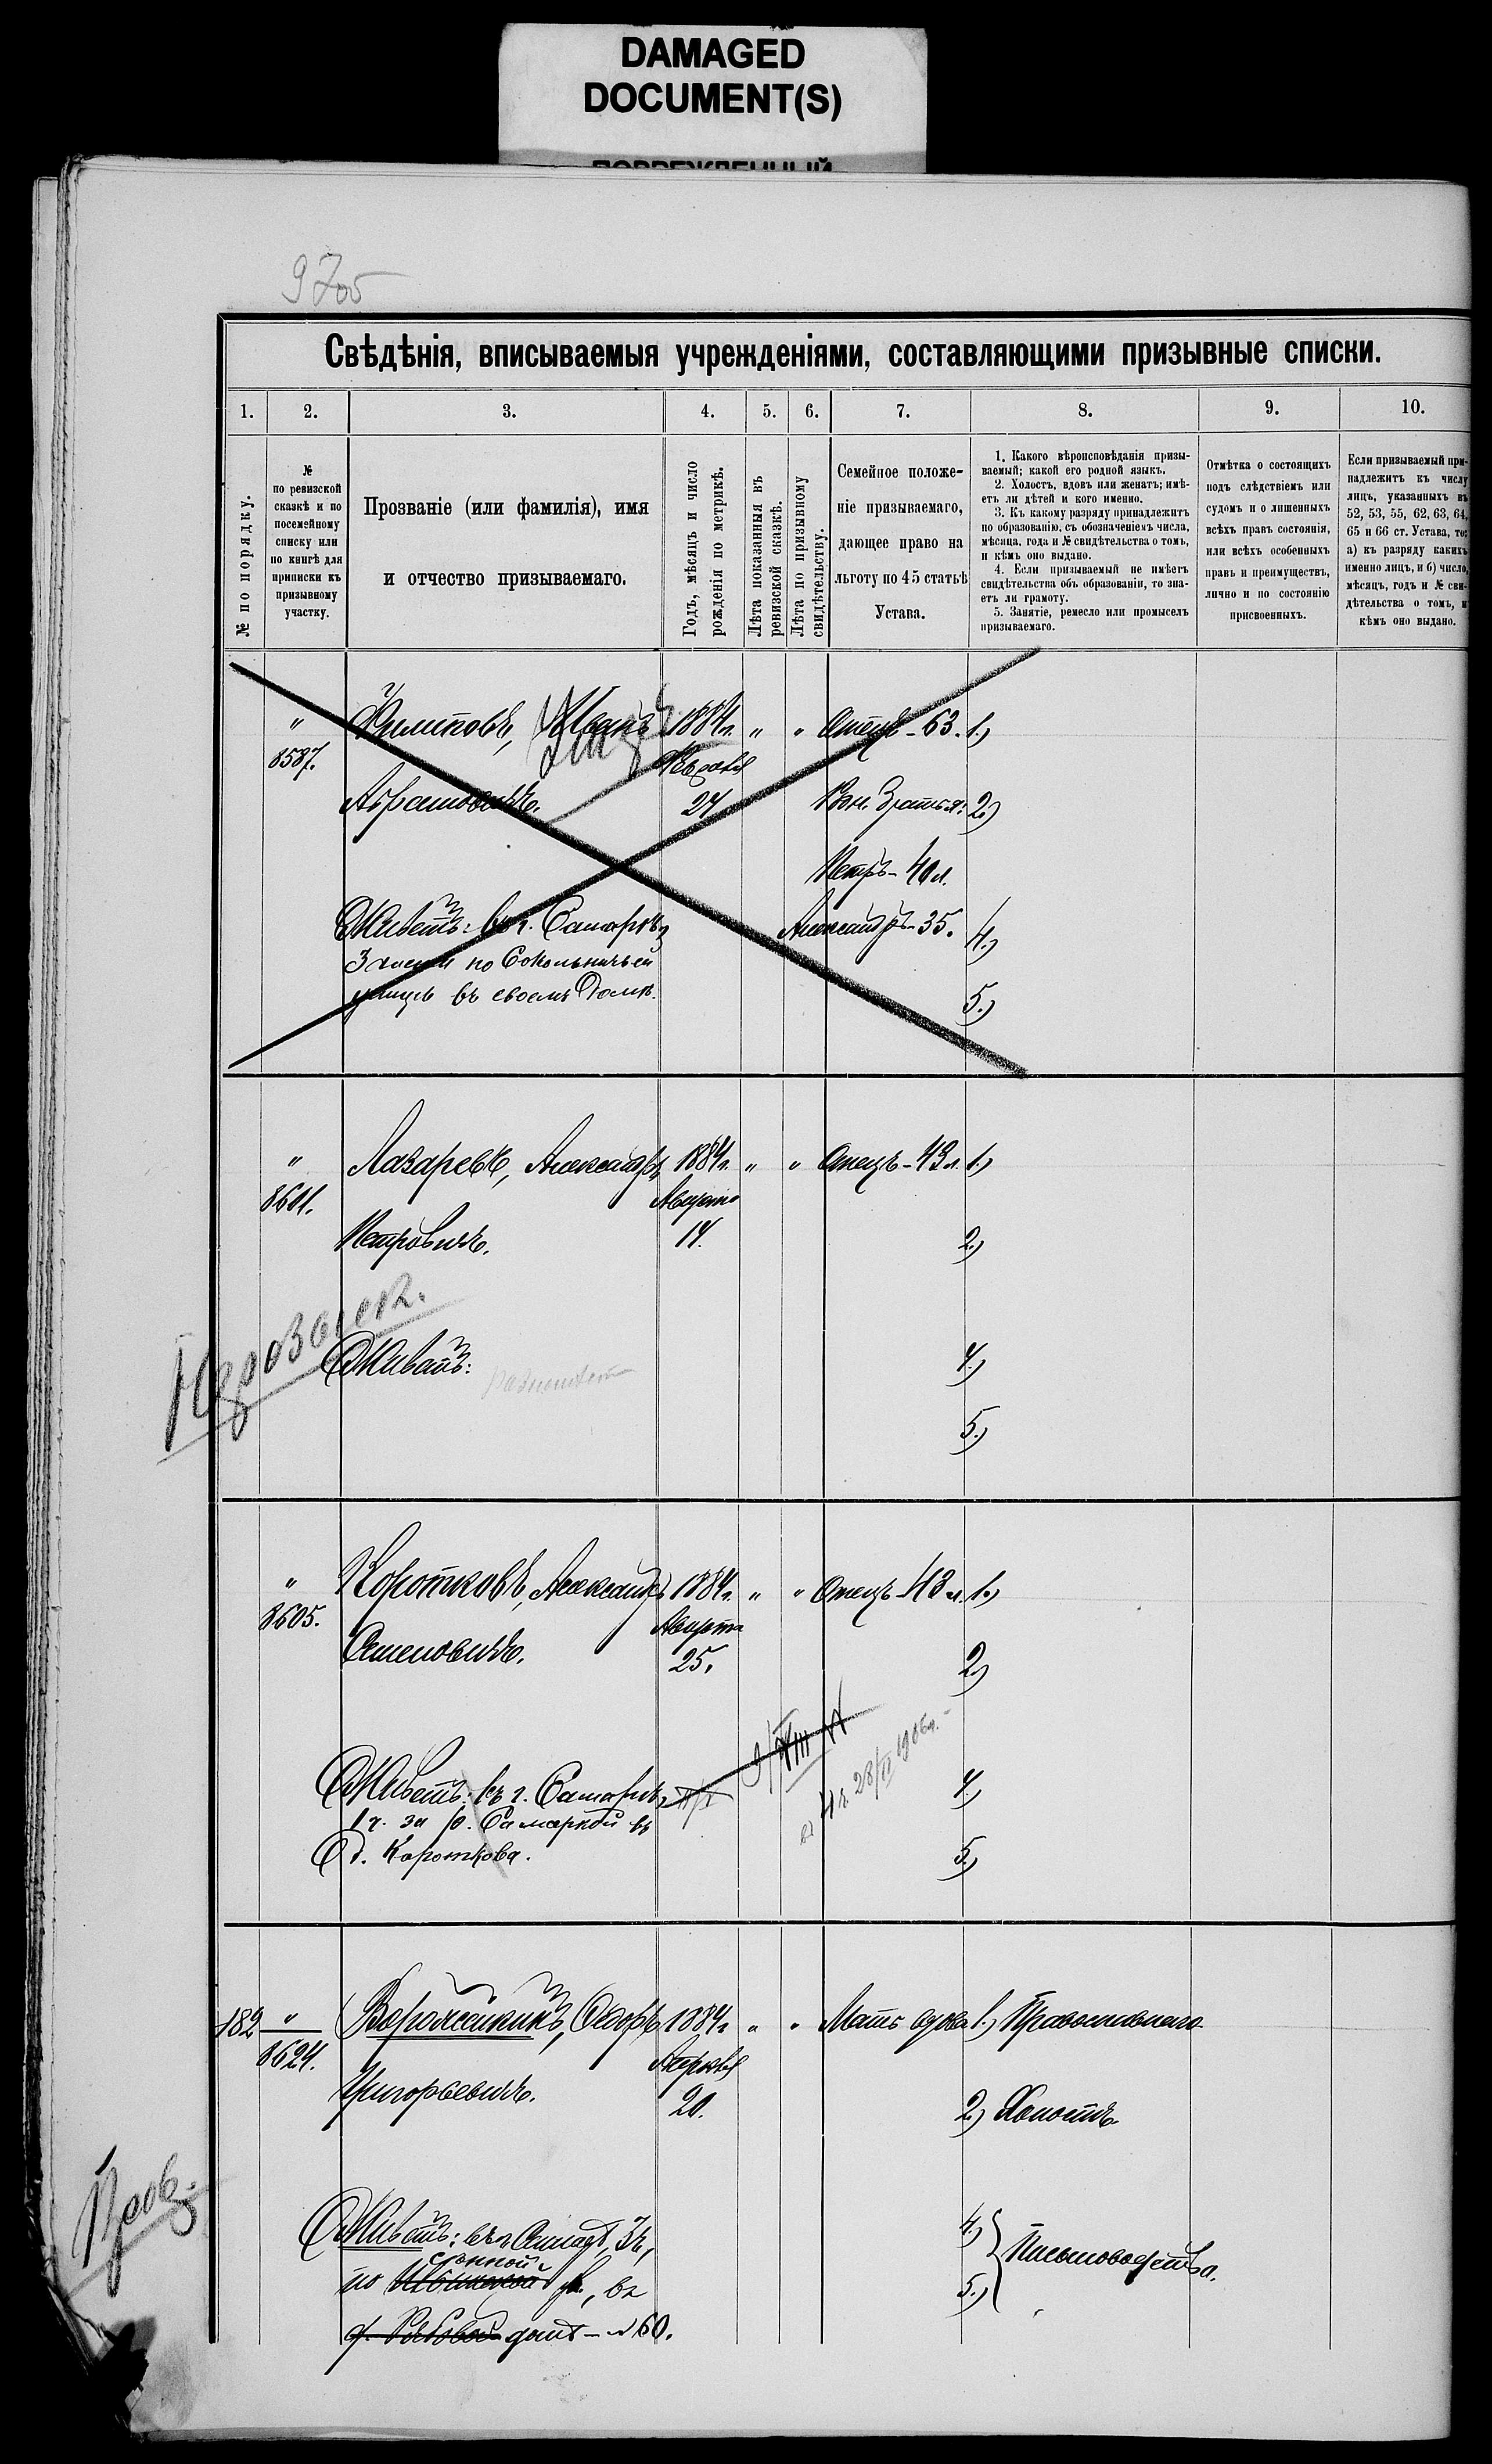 DAMAGED
DOCUMENT(S)
ПОВРЕЖДЕННЫЙ
Свѣдѣнія, вписываемыя учрежденіями, составляющими призывные списки.
1. 2. 3. 4. 5. 6. 7. 8. 9. 10.
№ по порядку.
№
по ревизской
сказкѣ и по
посемейному
списку или
по книгѣ для
приписки къ
призывному
участку.
Прозваніе (или фамилія), имя
и отчество призываемаго.
Годъ, мѣсяцъ и число
рожденія по метрикѣ.
Лѣта показанныя въ
ревизской сказкѣ.
Лѣта по призывному
свидѣтельству.
Семейное положе-
ніе призываемаго,
дающее право на
льготу по 45 статьѣ
Устава.
1. Какого вѣроисповѣданія призы-
ваемый; какой его родной языкъ.
2. Холостъ, вдовъ или женатъ; имѣ-
етъ ли дѣтей и кого именно.
3. Къ какому разряду принадлежитъ
по образованію, съ обозначеніемъ числа,
мѣсяца, года и № свидѣтельства о томъ,
и кѣмъ оно выдано.
4. Если призываемый не имѣетъ
свидѣтельства объ образованіи, то зна-
етъ ли грамоту.
5. Занятіе, ремесло или промыселъ
призываемаго.
Отмѣтка о состоящихъ
подъ слѣдствіемъ или
судомъ и о лишенныхъ
всѣхъ правъ состоянія,
или всѣхъ особенныхъ
правъ и преимуществъ,
лично и по состоянію
присвоенныхъ.
Если призываемый при-
надлежитъ къ числу
лицъ, указанныхъ въ
52, 53, 55, 62, 63, 64,
65 и 66 ст. Устава, то:
а) къ разряду какихъ
именно лицъ, и б) число,
мѣсяцъ, годъ и № сви-
дѣтельства о томъ, и
кѣмъ оно выдано.
" Филиповъ, Иванъ 1884г. " " Отецъ - 63. 1.)
8587. Февраля
Абрамовичъ. 24 Братья: 2.)
Петръ - 40 л.
Живетъ: въ г. Самарѣ, Александръ - 35. 4.)
3 части по Сокольничьей
улицѣ въ своемъ домѣ. 5.)
" Лазаревъ, Александръ 1884г. " " Отецъ - 43 л. 1.)
8601. Августа
Петровичъ. 14. 2.)
Живетъ: 4.)
5.)
" Коротковъ, Александръ 1884г. " " Отецъ - 43 л. 1.)
8605. Августа
Семеновичъ. 25. 2.)
28/II 1906г.
Живетъ: въ г. Самарѣ, 4.)
1 ч. за р. Самаркой въ
д. Короткова. 5.)
182 " Ворожейкинъ, Федоръ 1884г. " " Мать вдова 1.) Православнаго
8624. Апрѣля
Григорьевичъ. 20. 2.) Холостъ
Живетъ: въ г. Самарѣ, 3 ч., 4.)
по ул., въ 5.) Письмоводства.
домѣ - № 60.